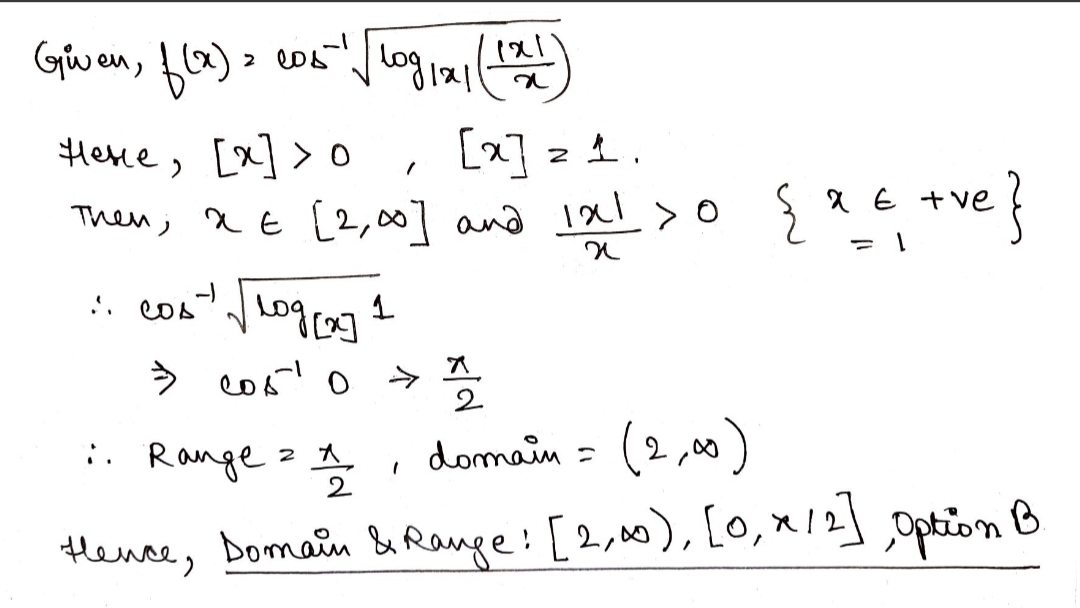 Given, f(x) = cos⁻¹ √log|x| (|x|/x)
Here, [x] > 0 , [x] = 1.
Then, x ∈ [2,∞] and |x|/x > 0 { x ∈ +ve = 1 }
∴ cos⁻¹ √log[x] 1
⇒ cos⁻¹ 0 → π/2
∴ Range = π/2 , domain = (2,∞)
Hence, Domain & Range : [2,∞), [0, π/2] , Option B